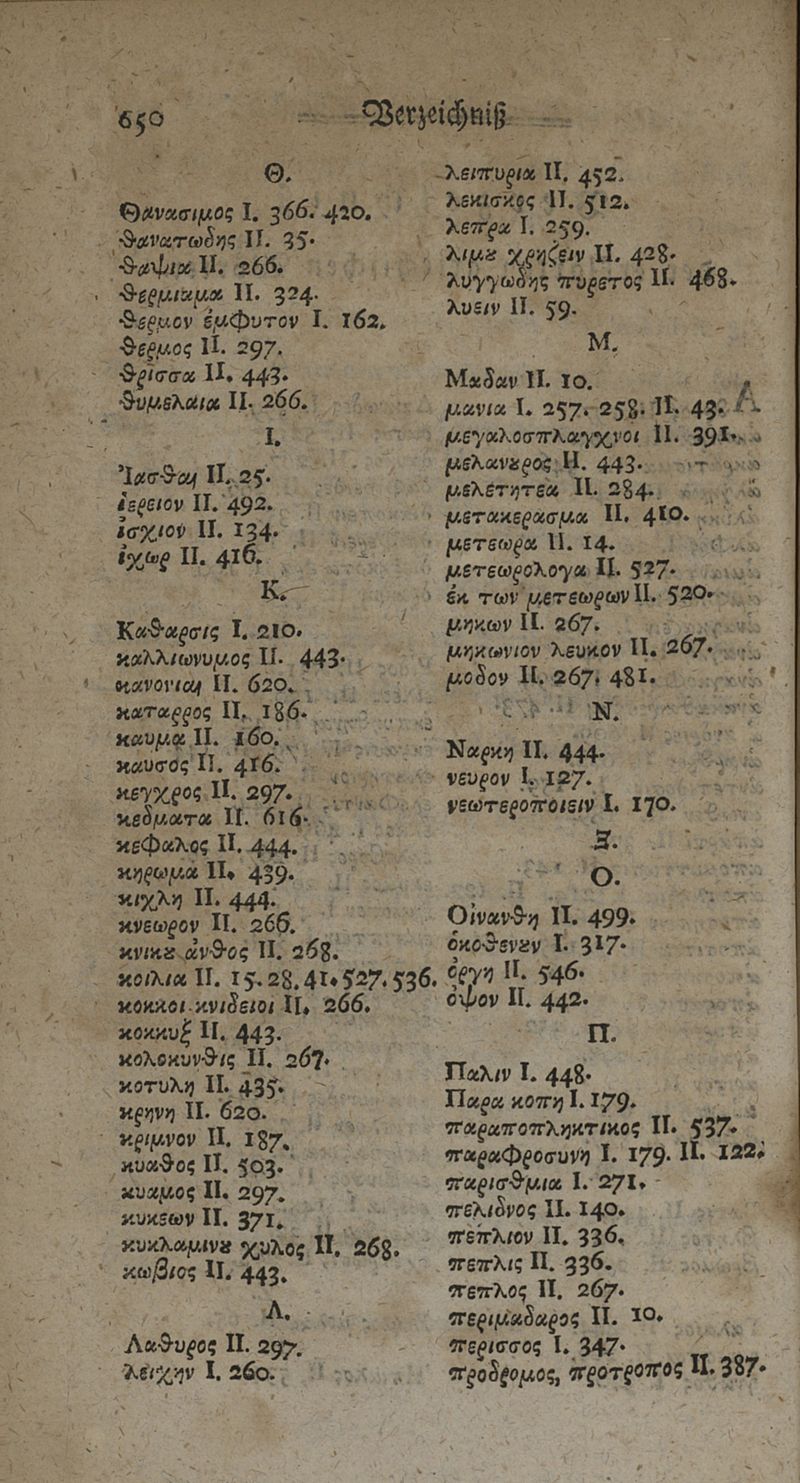 650 Verzeichniß
Θ.
Θανασιμος I. 366. 420.
θανατωδης II. 35.
θαψια II. 266.
θερμασμα II. 324.
θερμον ἐμφυτον I. 162.
θερμος II. 297.
θρισσα II. 443.
θυμελαια II. 266.
I.
Ἰασθαι II. 25.
ἱερειον II. 492.
ἰσχιον II. 134.
ἰχωρ II. 416.
K.
Καθαρσις I. 210.
καλλιωνυμος II. 443.
κανονιαι II. 620.
καταρρος II. 186.
καυμα II. 160.
καυσός II. 416.
κεγχρος II. 297.
κεδματα II. 616.
κεφαλος II. 444.
κηρωμα II. 439.
κιχλη II. 444.
κνεωρον II. 266.
κνικȣ ἀνθος II. 268.
κοιλια II. 15. 28. 41. 527. 536.
κοκκοι κνιδειοι II. 266.
κοκκυξ II. 443.
κολοκυνθις II. 267.
κοτυλη II. 435.
κρηνη II. 620.
κριμνον II. 187.
κυαθος II. 503.
κυαμος II. 297.
κυκεων II. 371.
κυκλαμινȣ χυλος II. 268.
κωβιος II. 443.
Λ.
Λαθυρος II. 297.
λειχην I. 260.
λειπυρια II. 452.
λεκισκος II. 512.
λεπρα I. 259.
λιμȣ χρηζειν II. 428.
λυγγωδης πυρετος II. 468.
λυειν II. 59.
M.
Μαδαν II. 10.
μανια I. 257. 258. II. 43
μεγαλοσπλαγχνοι II. 391.
μελανȣρος II. 443.
μελετητεα II. 284.
μετακερασμα II. 410.
μετεωρα II. 14.
μετεωρολογα II. 527.
ἐκ των μετεωρων II. 520.
μηκων II. 267.
μηκωνιον λευκον II. 267.
μοδον II. 267. 481.
N.
Ναρκη II. 444.
νευρον I. 127.
νεωτεροποιειν I. 170.
Ξ.
O.
Οἰνανθη II. 499.
ὁκοθενȣν I. 317.
ὀργη II. 546.
ὀψον II. 442.
Π.
Παλιν I. 448.
Παρα κοπη I. 179.
παραποπληκτικος II. 537.
παραφροσυνη I. 179. II. 122.
παρισθμια I. 271.
πελιδνος II. 140.
πεπλιον II. 336.
πεπλις II. 336.
πεπλος II. 267.
περιμαδαρος II. 10.
περισσος I. 347.
προδρομος, προτροπος II. 387.